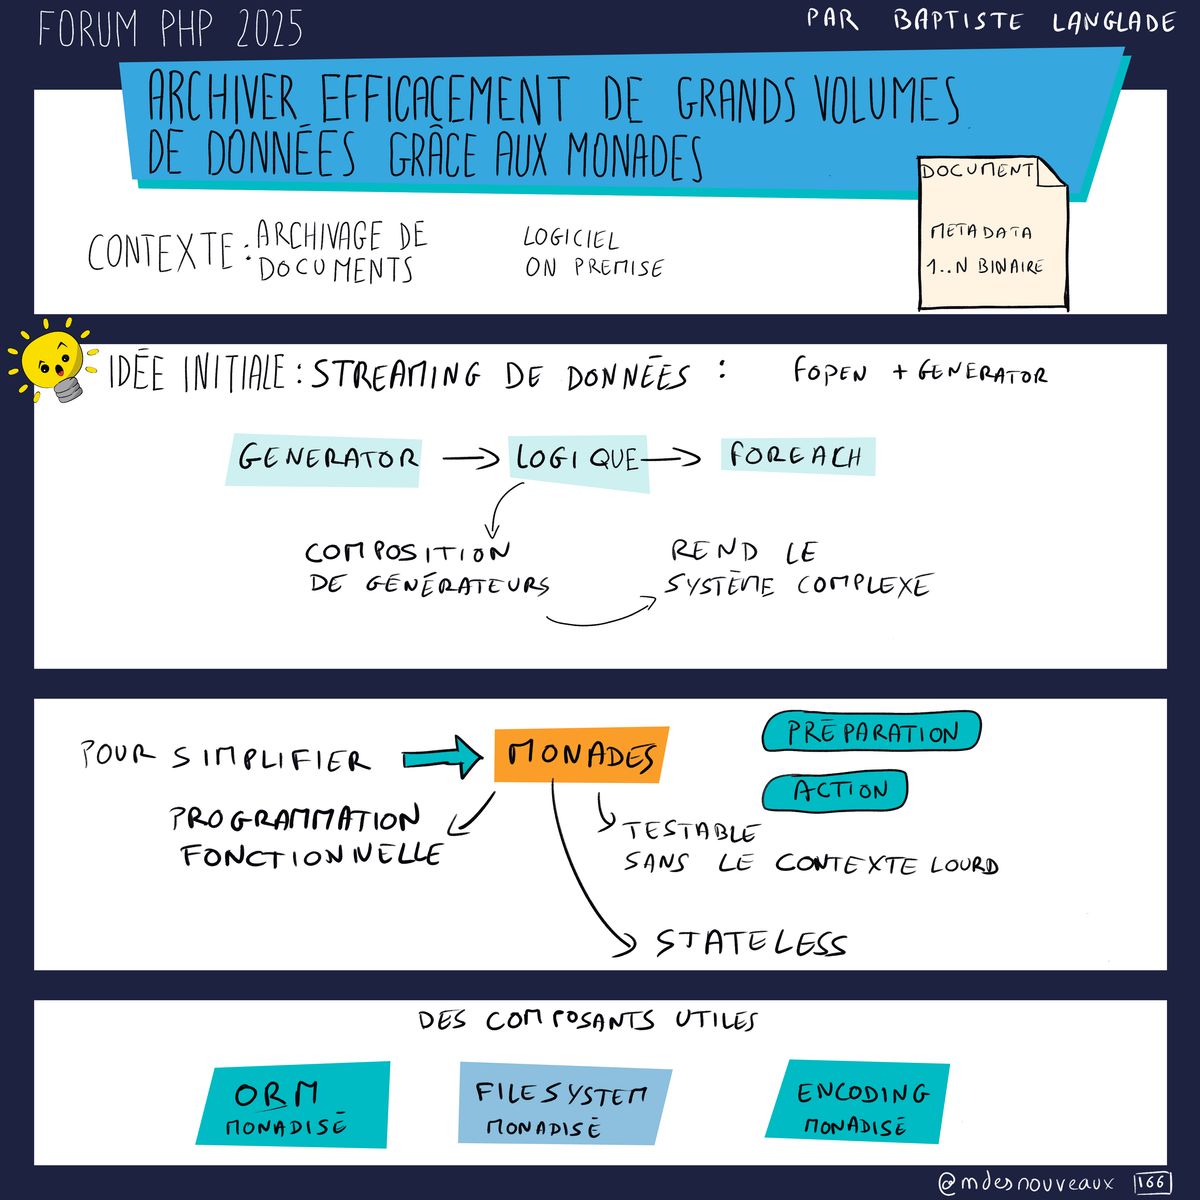 FORUM PHP 2025
PAR BAPTISTE LANGLADE
ARCHIVER EFFICACEMENT DE GRANDS VOLUMES
DE DONNÉES GRÂCE AUX MONADES
DOCUMENT
METADATA
1..N BINAIRE
CONTEXTE : ARCHIVAGE DE
DOCUMENTS
LOGICIEL
ON PREMISE
IDÉE INITIALE : STREAMING DE DONNÉES : FOPEN + GENERATOR
GENERATOR → LOGIQUE → FOREACH
COMPOSITION
DE GÉNÉRATEURS
REND LE
SYSTÈME COMPLEXE
POUR SIMPLIFIER
MONADES
PRÉPARATION
ACTION
PROGRAMMATION
FONCTIONNELLE
TESTABLE
SANS LE CONTEXTE LOURD
STATELESS
DES COMPOSANTS UTILES
ORM
MONADISÉ
FILESYSTEM
MONADISÉ
ENCODING
MONADISÉ
@mdesnouveaux 166